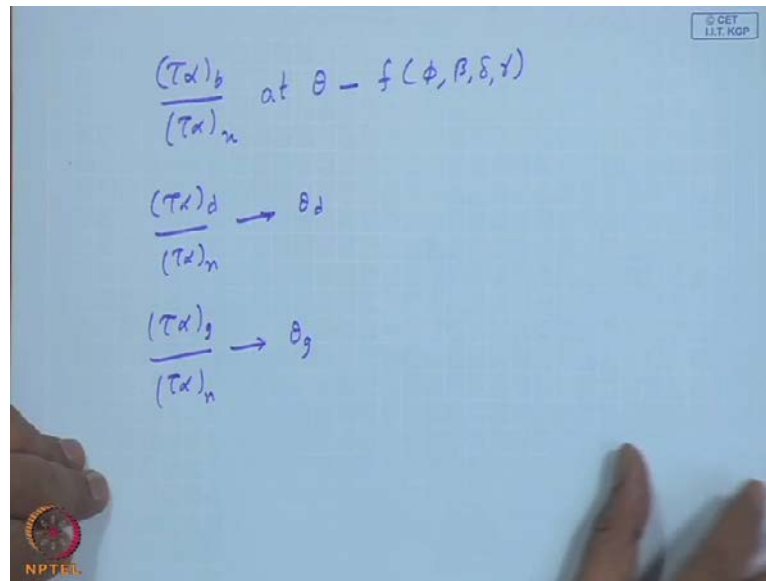 © CET
I.I.T. KGP
(τα)b / (τα)n at θ – f(φ, β, δ, γ)
(τα)d / (τα)n → θd
(τα)g / (τα)n → θg
NPTEL